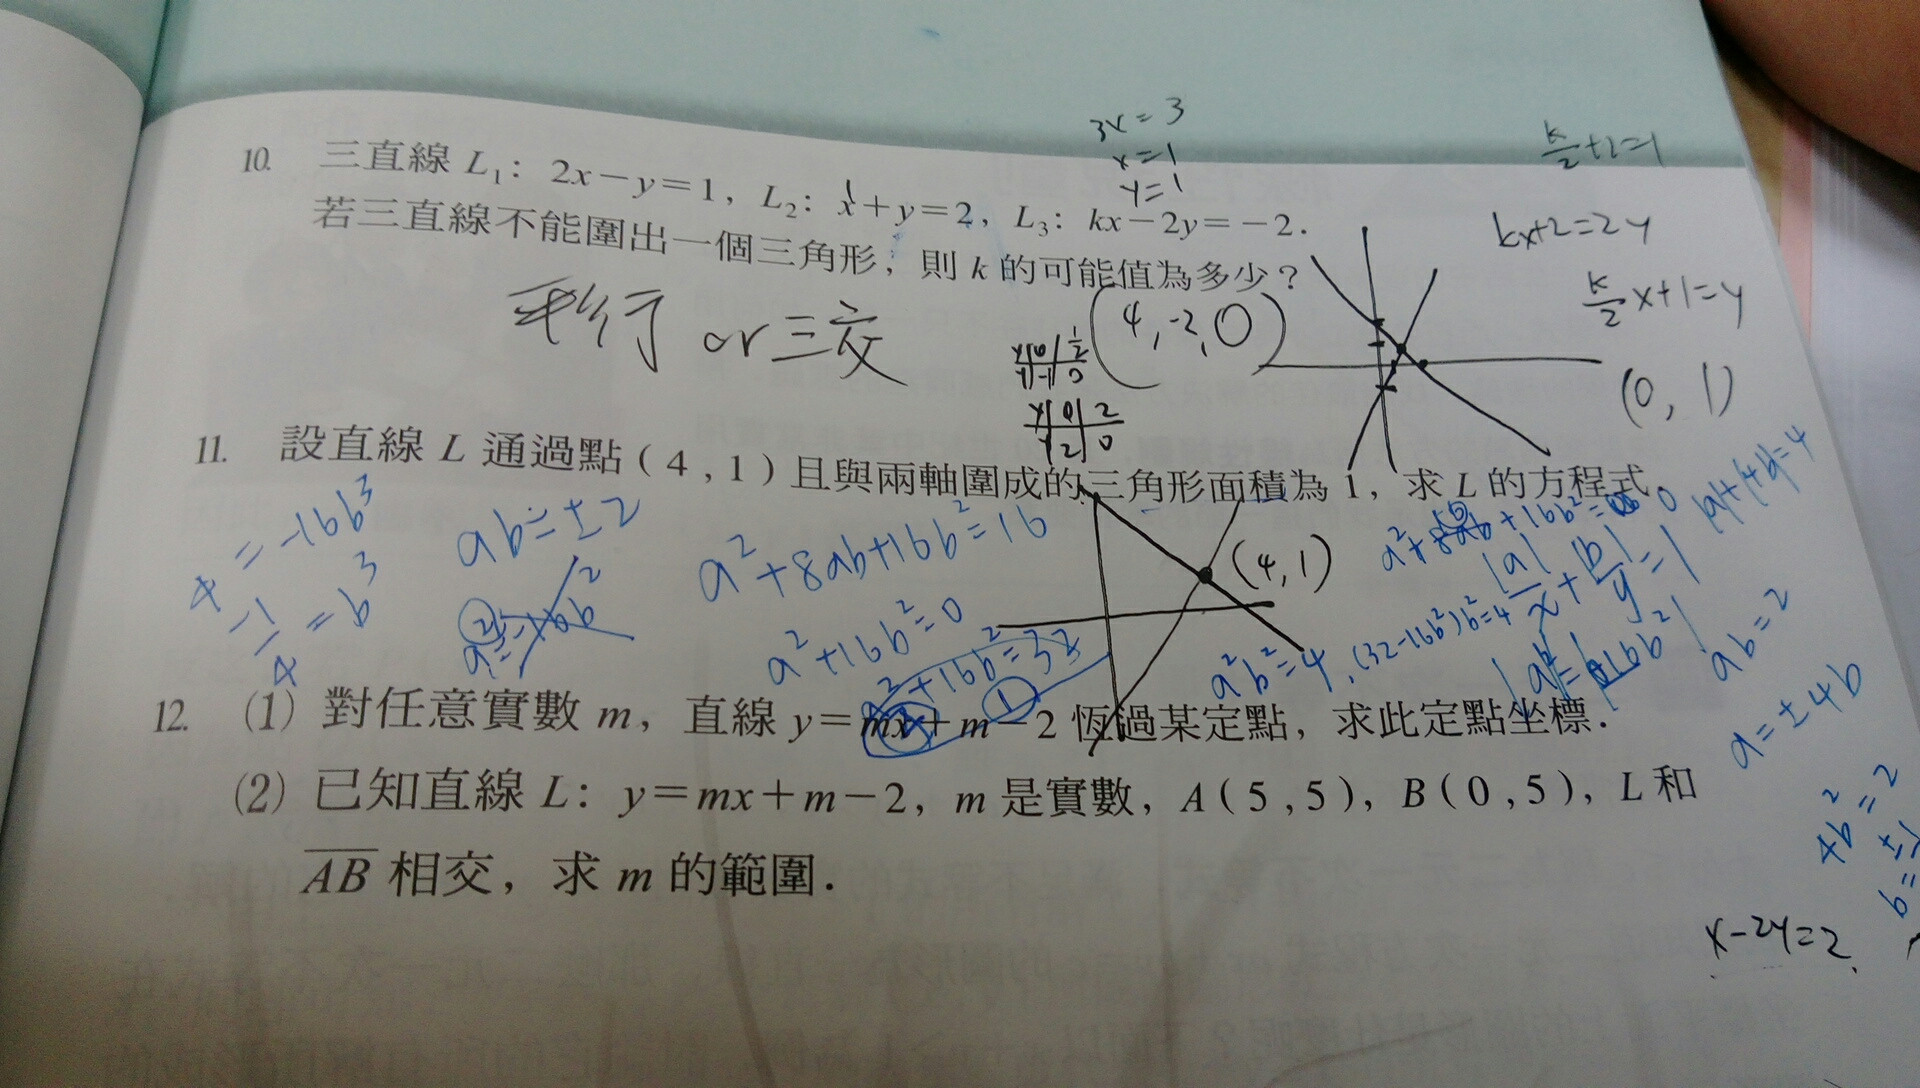 3x=3
x=1
y=1
k/2+2=1
10. 三直線 L₁:2x-y=1, L₂:x+y=2, L₃:kx-2y=-2.
若三直線不能圍出一個三角形,則 k 的可能值為多少?
kx+2=2y
k/2 x+1=y
(0, 1)
平行 or 三交
(4,-2,0)
x 0 1/2
y -1 0
x 0 2
y 2 0
11. 設直線 L 通過點(4,1)且與兩軸圍成的三角形面積為 1,求 L 的方程式.
4=-16b³
-1/4=b³
ab=±2
a²+8ab+16b²=16
a²+16b²=0
a²+16b²=32
(4,1)
a²b²=4
(32-16b²)b²=4
|a|/x+|b|/y=1
ab=2
a=±4b
4b²=2
12. (1) 對任意實數 m,直線 y=mx+m-2 恆過某定點,求此定點坐標.
(2) 已知直線 L:y=mx+m-2,m 是實數,A(5,5),B(0,5),L 和
AB 相交,求 m 的範圍.
x-2y=2